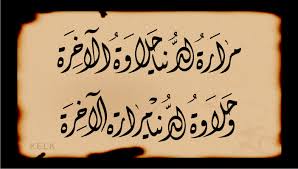 مَرَارَةُ الدُّنْيَا حَلَاوَةُ الْآخِرَةِ
وَحَلَاوَةُ الدُّنْيَا مَرَارَةُ الْآخِرَةِ
KELK